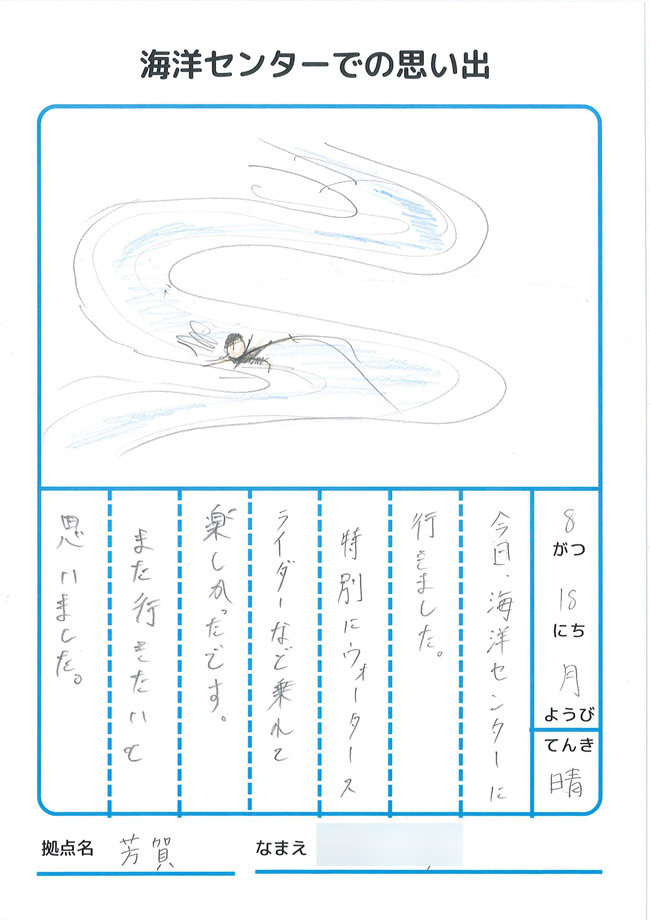 海洋センターでの思い出
8がつ18にち月ようび
てんき晴
今日、海洋センターに
行きました。
特別にウォータース
ライダーなど乗れて
楽しかったです。
また行きたいと
思いました。
拠点名 芳賀
なまえ